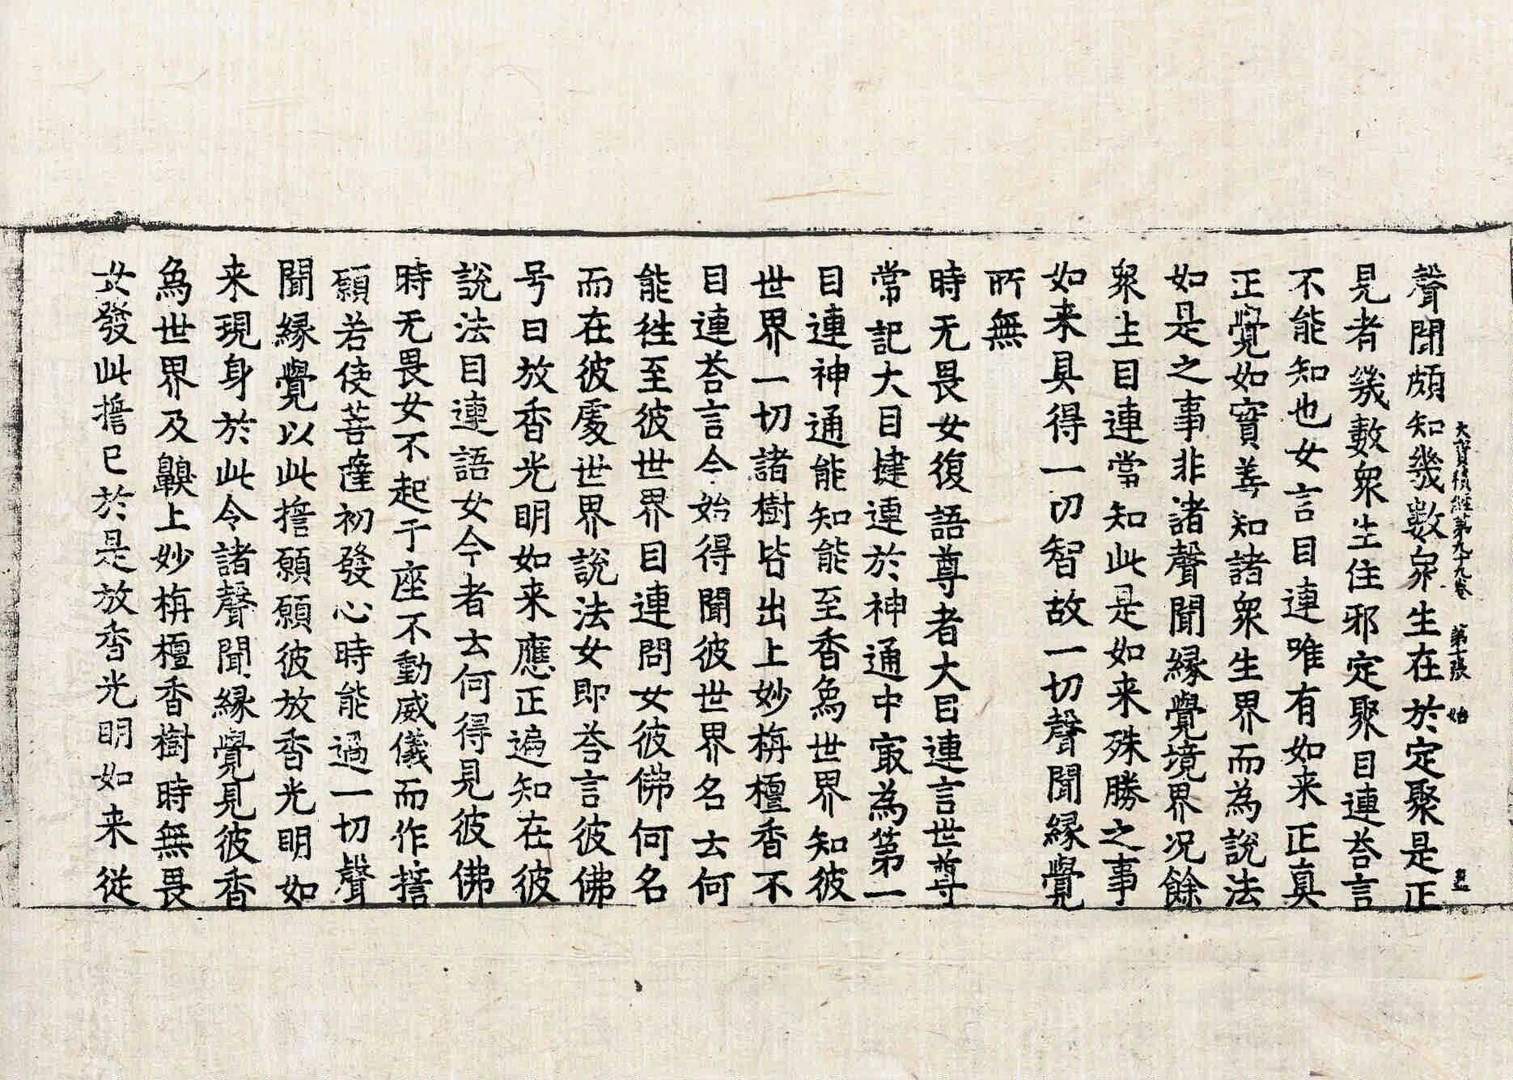 大寶積經第九十九卷 第十張 始
聲聞頗知幾數衆生在於定聚是正
見者幾數衆生住邪定聚目連荅言
不能知也女言目連唯有如来正真
正覺如實善知諸衆生界而為說法
如是之事非諸聲聞緣覺境界况餘
衆生目連當知此是如来殊勝之事
如来具得一切智故一切聲聞緣覺
所無
時无畏女復語尊者大目連言世尊
常記大目揵連於神通中㝡為第一
目連神通能知能至香為世界知彼
世界一切諸樹皆出上妙栴檀香不
目連荅言今始得聞彼世界名云何
能徃至彼世界目連問女彼佛何名
而在彼處世界說法女即荅言彼佛
号曰放香光明如来應正遍知在彼
說法目連語女今者云何得見彼佛
時无畏女不起于座不動威儀而作誓
願若使菩薩初發心時能過一切聲
聞緣覺以此誓願願彼放香光明如
来現身於此令諸聲聞緣覺見彼香
為世界及齅上妙栴檀香樹時無畏
女發此誓已於是放香光明如来從